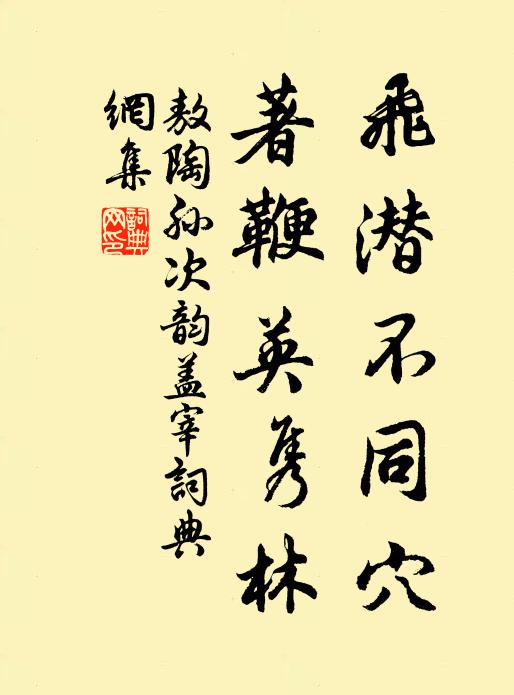 飛潜不同穴
著鞭英隽林
敖陶孫次韵盖宰詞典
網集
詞典网印